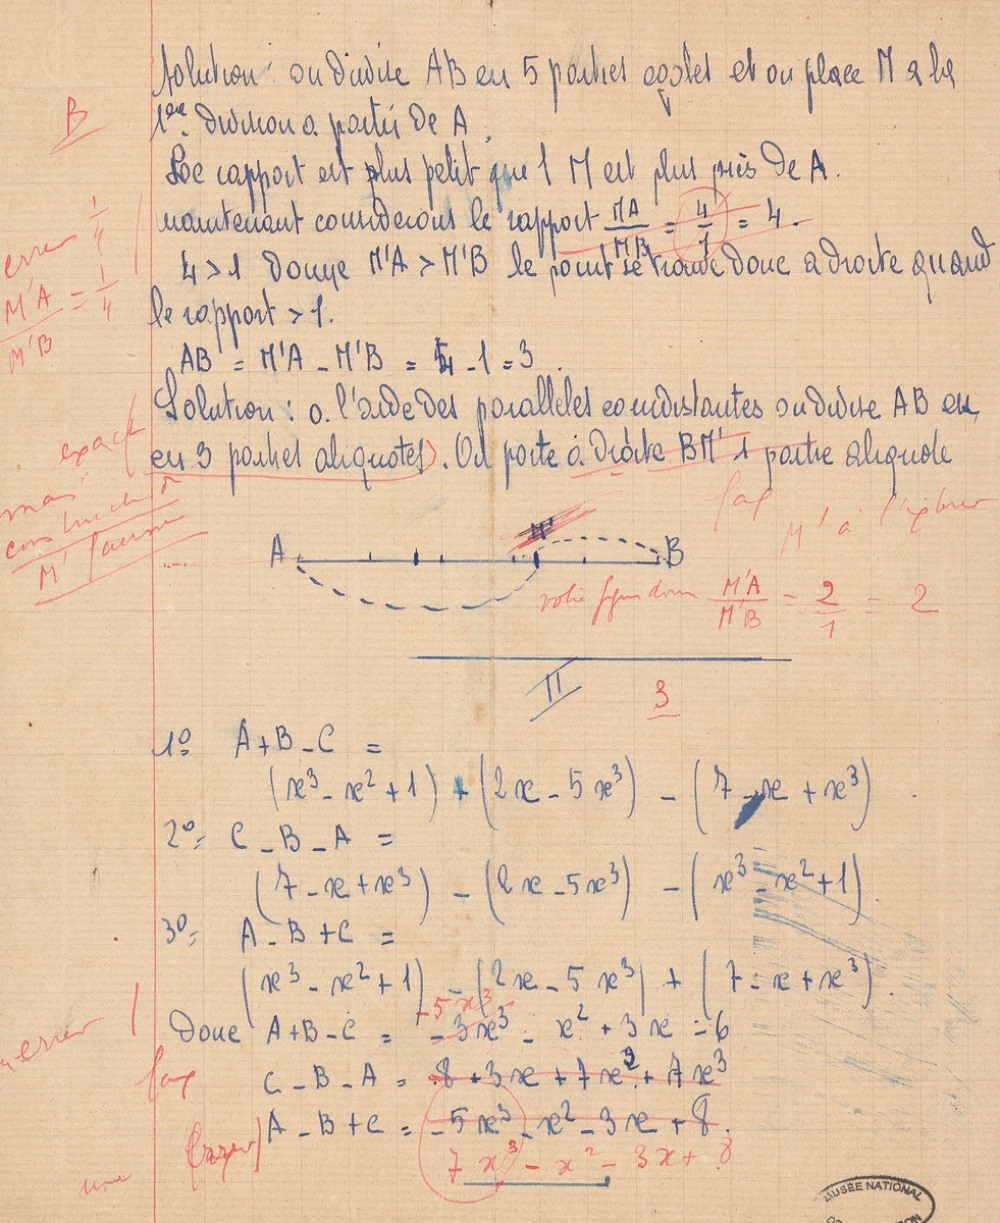 B
Solution : on divise AB en 5 parties egales et on place M a la
1ere division a partir de A.
Le rapport est plus petit que 1 M est plus près de A.
maintenant considerons le rapport MA/MB = 4/1 = 4.
erreur 1/4
4 > 1 donne M'A > M'B le point se trouve donc a droite quand
M'A/M'B = 1/4
le rapport > 1.
AB = M'A - M'B = 4 - 1 = 3.
Solution : a l'aide des paralleles equidistantes on divise AB en
exact
en 3 parties aliquotes). On porte à droite BM' 1 partie aliquote
mais
construction
M' fausse
faux M' à l'extérieur
A M' B
votre figure donne M'A/M'B = 2/1 = 2
II
3
1º A+B-C =
(x³ - x² + 1) + (2x - 5x³) - (7 - x + x³)
2º= C - B - A =
(7 - x + x³) - (2x - 5x³) - (x³ - x² + 1)
3º= A - B + C =
(x³ - x² + 1) - (2x - 5x³) + (7 - x + x³).
-5x³
erreur Donc A+B-C = -3x³ - x² + 3x = 6
faux C - B - A = 8 + 3x + 7x² + 7x³
A - B + C = -5x³ - x² - 3x + 8.
7x³ - x² - 3x + 8
MUSÉE NATIONAL